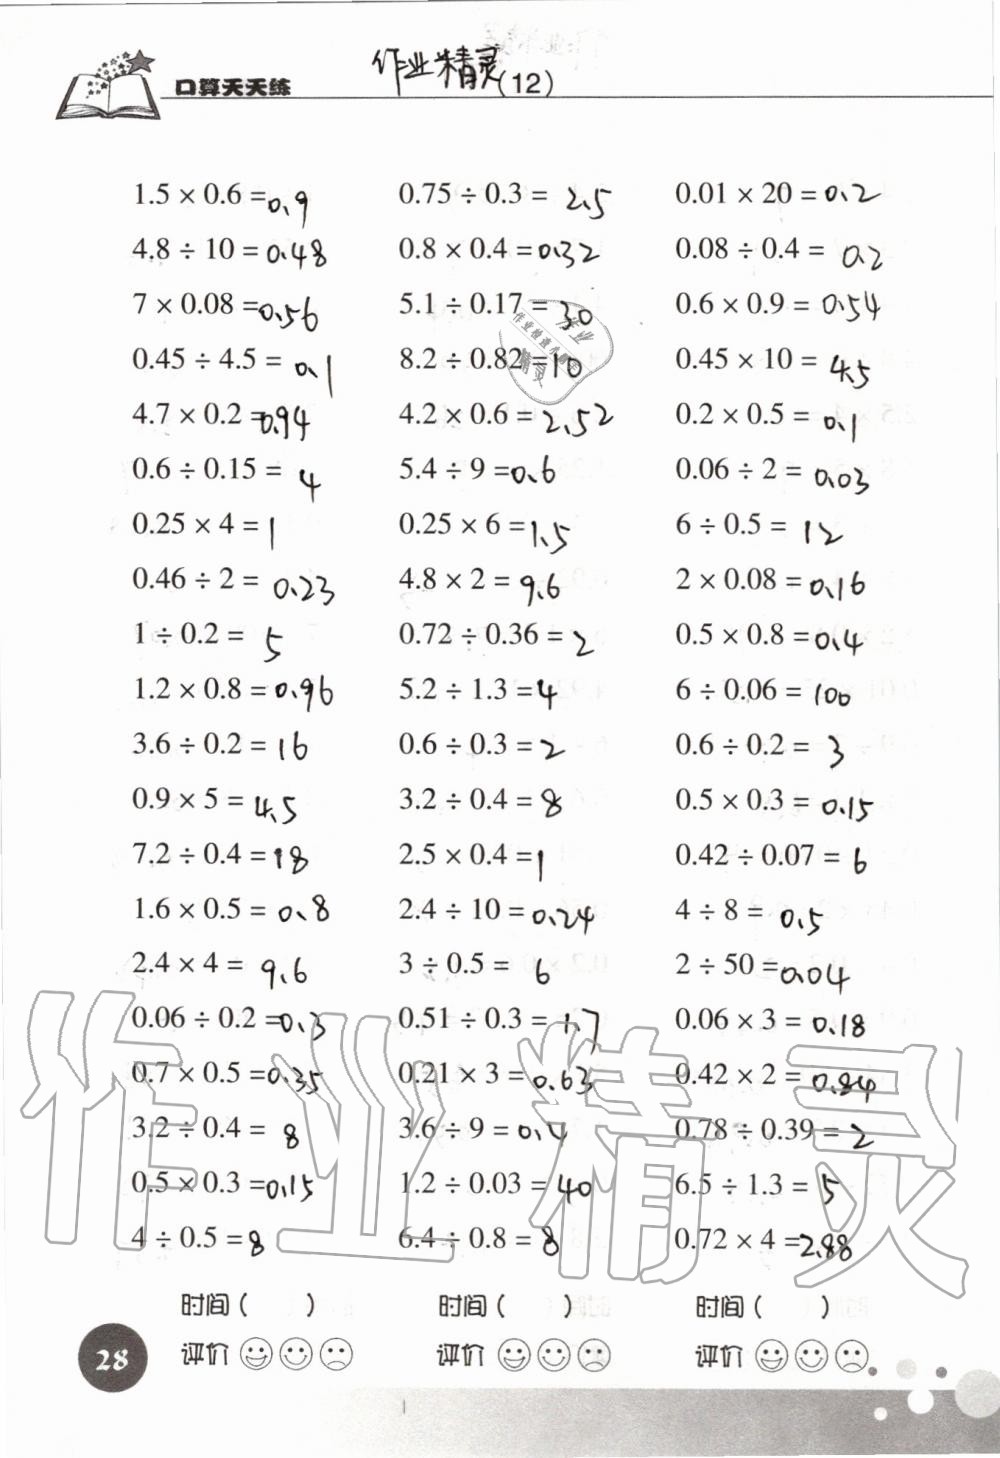 口算天天练 作业精灵 (12)
1.5 × 0.6 = 0.9 0.75 ÷ 0.3 = 2.5 0.01 × 20 = 0.2
4.8 ÷ 10 = 0.48 0.8 × 0.4 = 0.32 0.08 ÷ 0.4 = 0.2
7 × 0.08 = 0.56 5.1 ÷ 0.17 = 30 0.6 × 0.9 = 0.54
0.45 ÷ 4.5 = 0.1 8.2 ÷ 0.82 = 10 0.45 × 10 = 4.5
4.7 × 0.2 = 0.94 4.2 × 0.6 = 2.52 0.2 × 0.5 = 0.1
0.6 ÷ 0.15 = 4 5.4 ÷ 9 = 0.6 0.06 ÷ 2 = 0.03
0.25 × 4 = 1 0.25 × 6 = 1.5 6 ÷ 0.5 = 12
0.46 ÷ 2 = 0.23 4.8 × 2 = 9.6 2 × 0.08 = 0.16
1 ÷ 0.2 = 5 0.72 ÷ 0.36 = 2 0.5 × 0.8 = 0.4
1.2 × 0.8 = 0.96 5.2 ÷ 1.3 = 4 6 ÷ 0.06 = 100
3.6 ÷ 0.2 = 16 0.6 ÷ 0.3 = 2 0.6 ÷ 0.2 = 3
0.9 × 5 = 4.5 3.2 ÷ 0.4 = 8 0.5 × 0.3 = 0.15
7.2 ÷ 0.4 = 18 2.5 × 0.4 = 1 0.42 ÷ 0.07 = 6
1.6 × 0.5 = 0.8 2.4 ÷ 10 = 0.24 4 ÷ 8 = 0.5
2.4 × 4 = 9.6 3 ÷ 0.5 = 6 2 ÷ 50 = 0.04
0.06 ÷ 0.2 = 0.3 0.51 ÷ 0.3 = 1.7 0.06 × 3 = 0.18
0.7 × 0.5 = 0.35 0.21 × 3 = 0.63 0.42 × 2 = 0.84
3.2 ÷ 0.4 = 8 3.6 ÷ 9 = 0.4 0.78 ÷ 0.39 = 2
0.5 × 0.3 = 0.15 1.2 ÷ 0.03 = 40 6.5 ÷ 1.3 = 5
4 ÷ 0.5 = 8 6.4 ÷ 0.8 = 8 0.72 × 4 = 2.88
作业精灵
时间 ( ) 时间 ( ) 时间 ( )
28 评价 评价 评价